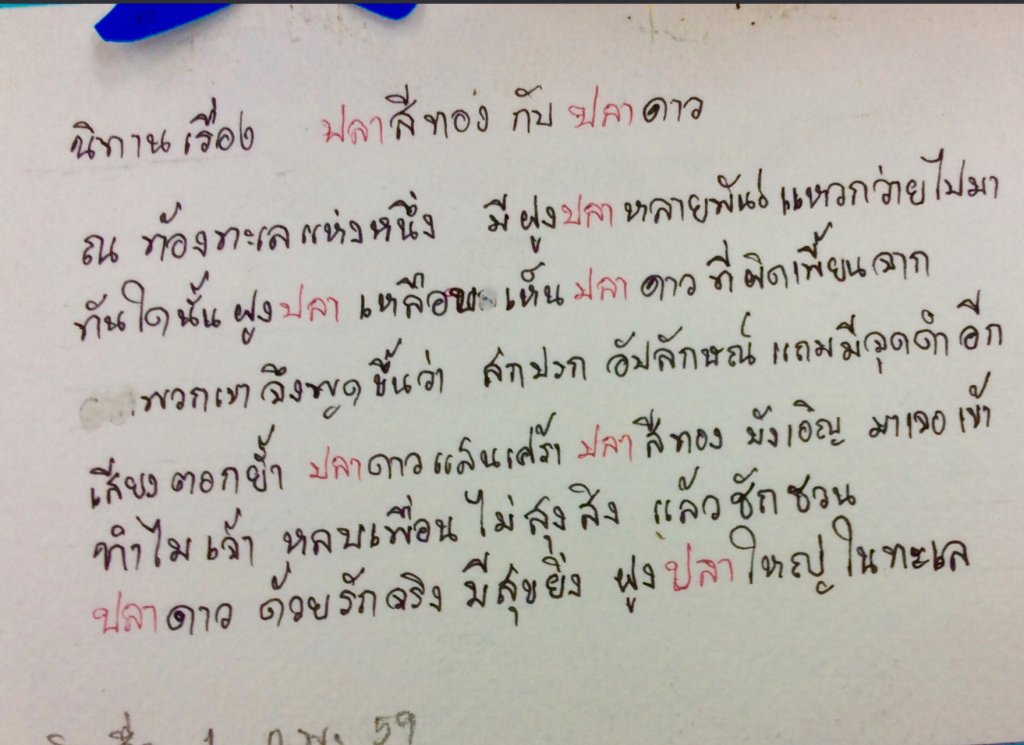 นิทานเรื่อง ปลาสีทอง กับ ปลาดาว
ณ ท้องทะเลแห่งหนึ่ง มีฝูงปลาหลายพันธุ์ แหวกว่ายไปมา
ทันใดนั้น ฝูงปลา เหลือบ เห็น ปลา ดาว ที่ผิดเพี้ยนจาก
พวกเขา จึงพูดขึ้นว่า สกปรก อัปลักษณ์ แถมมีจุดดำ อีก
เสียงตอกย้ำ ปลาดาวแสนเศร้า ปลาสีทอง บังเอิญ มาเจอเข้า
ทำไมเจ้า หลบเพื่อน ไม่สุงสิง แล้วชักชวน
ปลาดาว ด้วยรักจริง มีสุขยิ่ง ฝูงปลาใหญ่ในทะเล
59